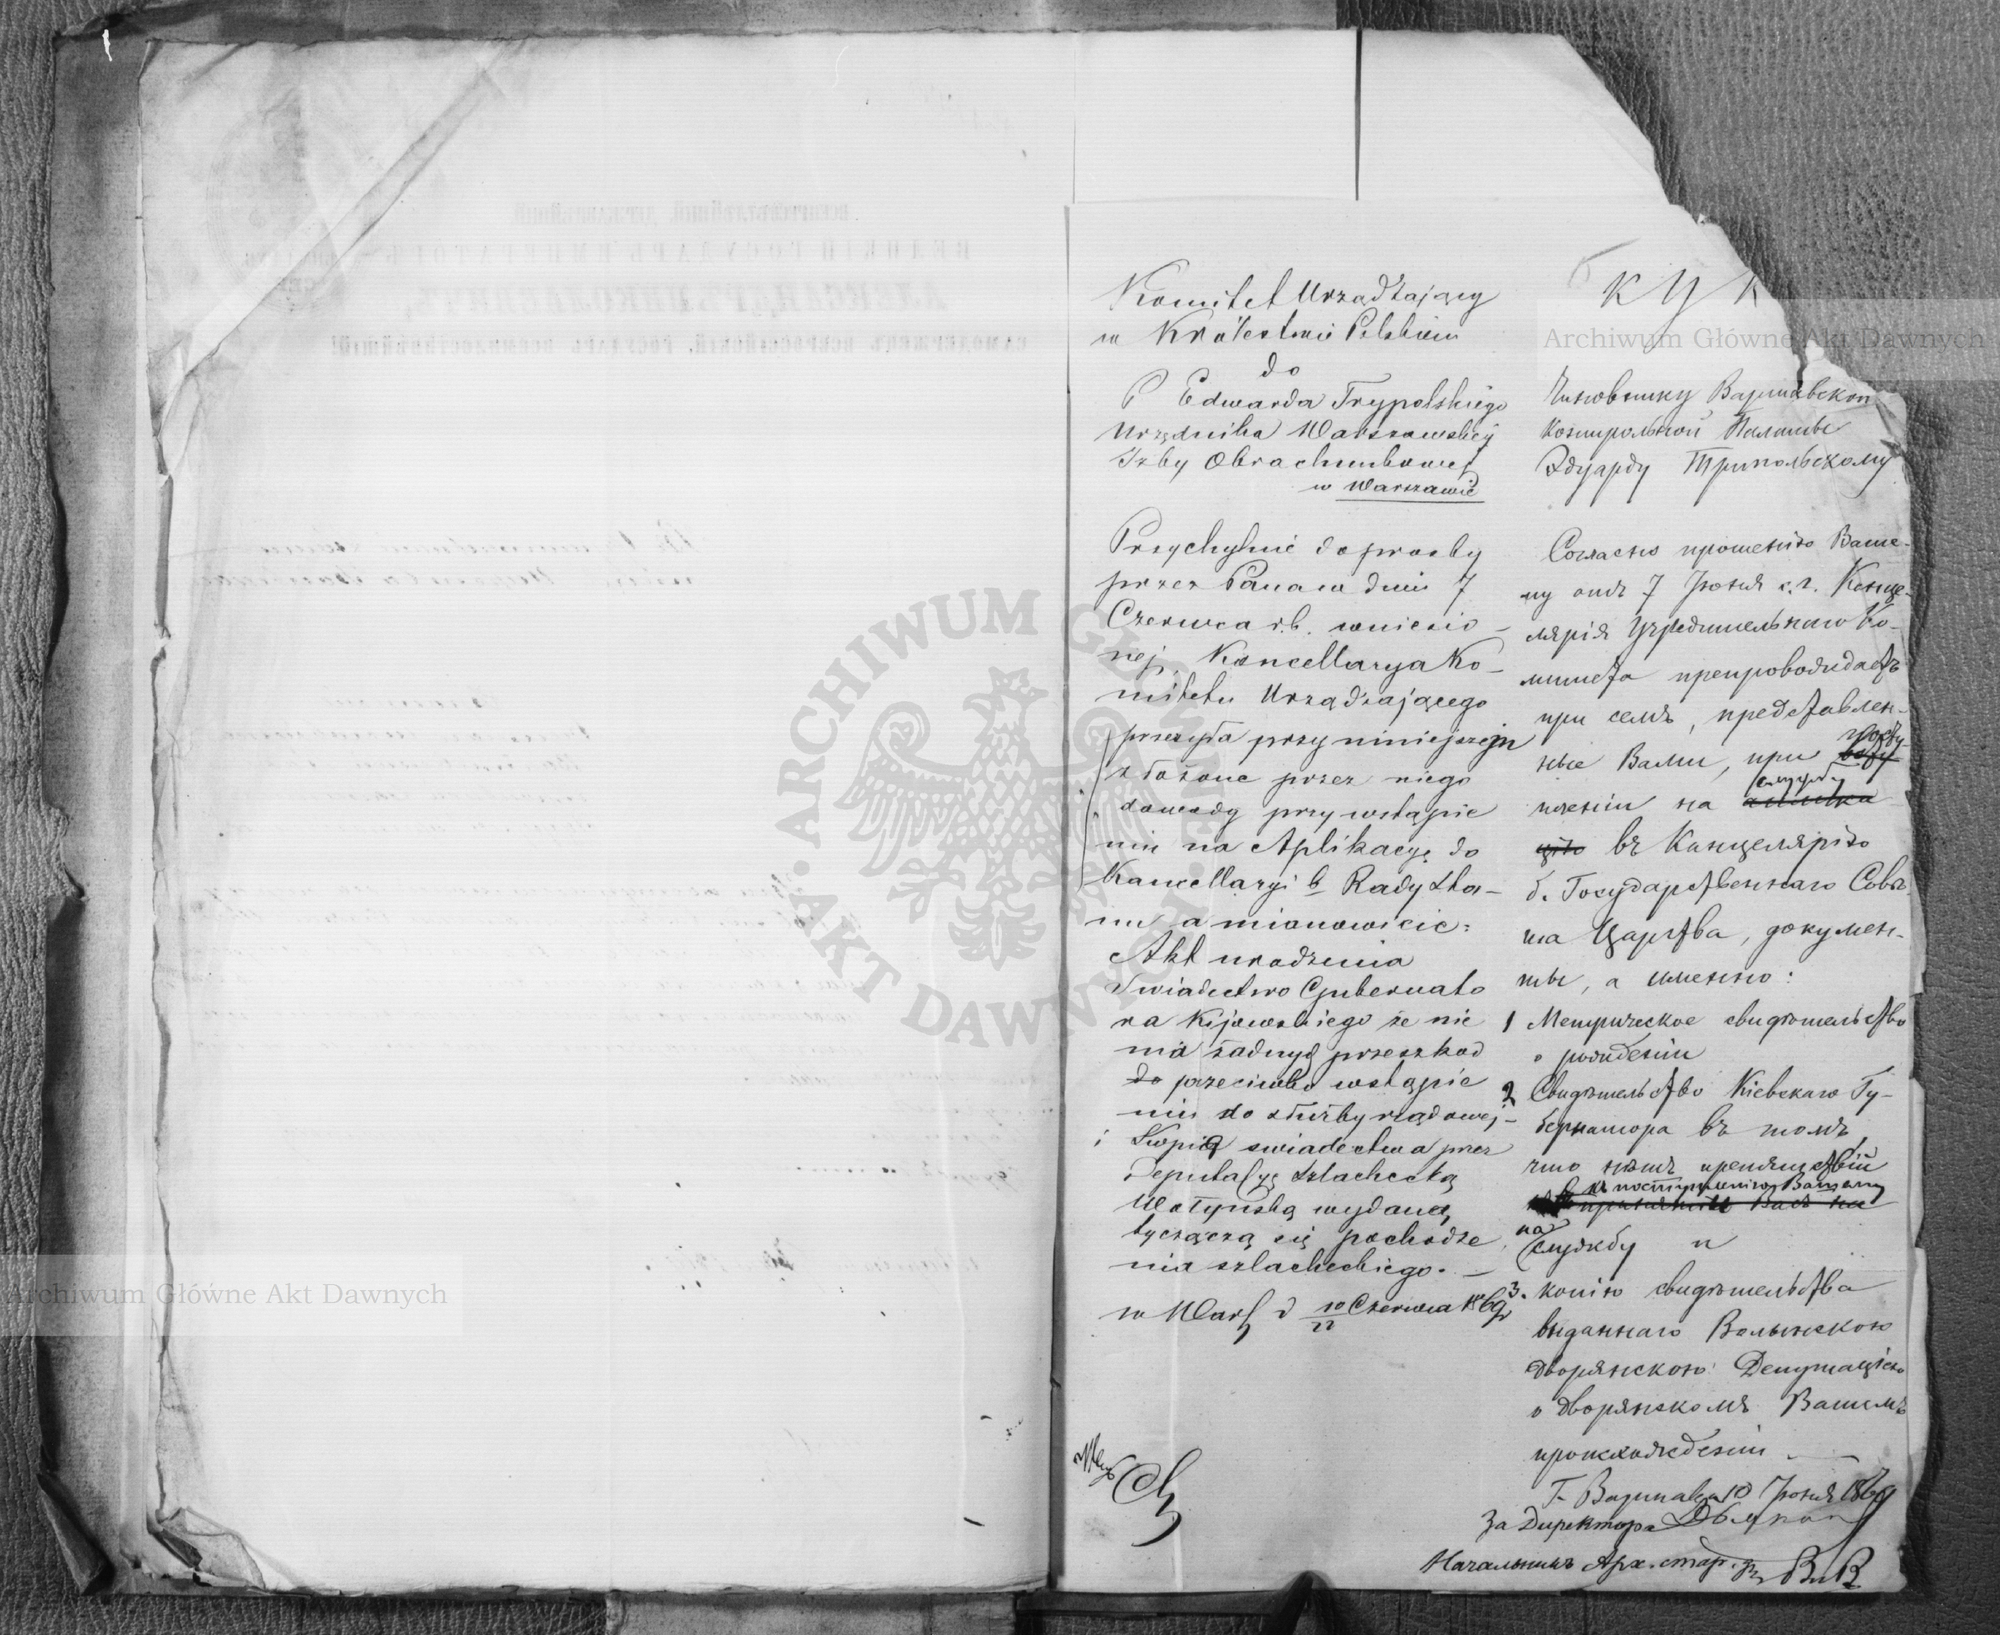 Komitet Urządzający
w Królestwie Polskiem
do
P Edwarda Trypolskiego
Urzędnika Warszawskiej
Izby Obrachunkowej
w Warszawie
Przychylnie do prosby
przez Pana w dniu 7
Czerwca r.b. wniesio-
nej, Kancellarya Ko-
mitetu Urządzającego
przesyła przy niniejszem
złożone przez niego
dowody przy wstąpie
niu na Aplikacyę do
Kancellaryi b Rady Sta-
nu a mianowicie:
Akt urodzenia
Swiadectwo Gubernato
ra Kijowskiego że nie
ma żadnych przeszkod
do przeciwko wstąpie
niu do służby rządowej-
i Kopią swiadectwa przez
Deputacyę Szlachecką
Wołyńską wydaną
tyczączą się pochodze
nia szlacheckiego. -
w Warsz d 10/22 Czerwca 1869
К У К
Чиновнику Варшавской
Контрольной Палаты
Эдуарду Трипольскому
Согласно прошенію Ваше-
му отъ 7 Іюня с.г. Канце-
лярія Учредительнаго Ко-
митета препровождаетъ
при семъ, представлен-
ные Вами, при посту-
пленіи на службу
въ Канцелярію
б. Государственнаго Совѣ-
та Царства, докумен-
ты, а именно:
1 Метрическое свидѣтельство
о рожденіи
2 Свидѣтельство Кіевскаго Гу-
бернатора въ томъ,
что нѣтъ препятствій
къ поступленію Вашему
на службу и
3. копію свидѣтельства
выданнаго Волынскою
дворянскою Депутаціею
о дворянскомъ Вашемъ
происхожденіи
Г. Варшава 10 Іюня 1869
За Директора
Начальникъ Арх. стар.
Archiwum Główne Akt Dawnych
Archiwum Główne Akt Dawnych
ARCHIWUM GŁÓWNE AKT DAWNYCH